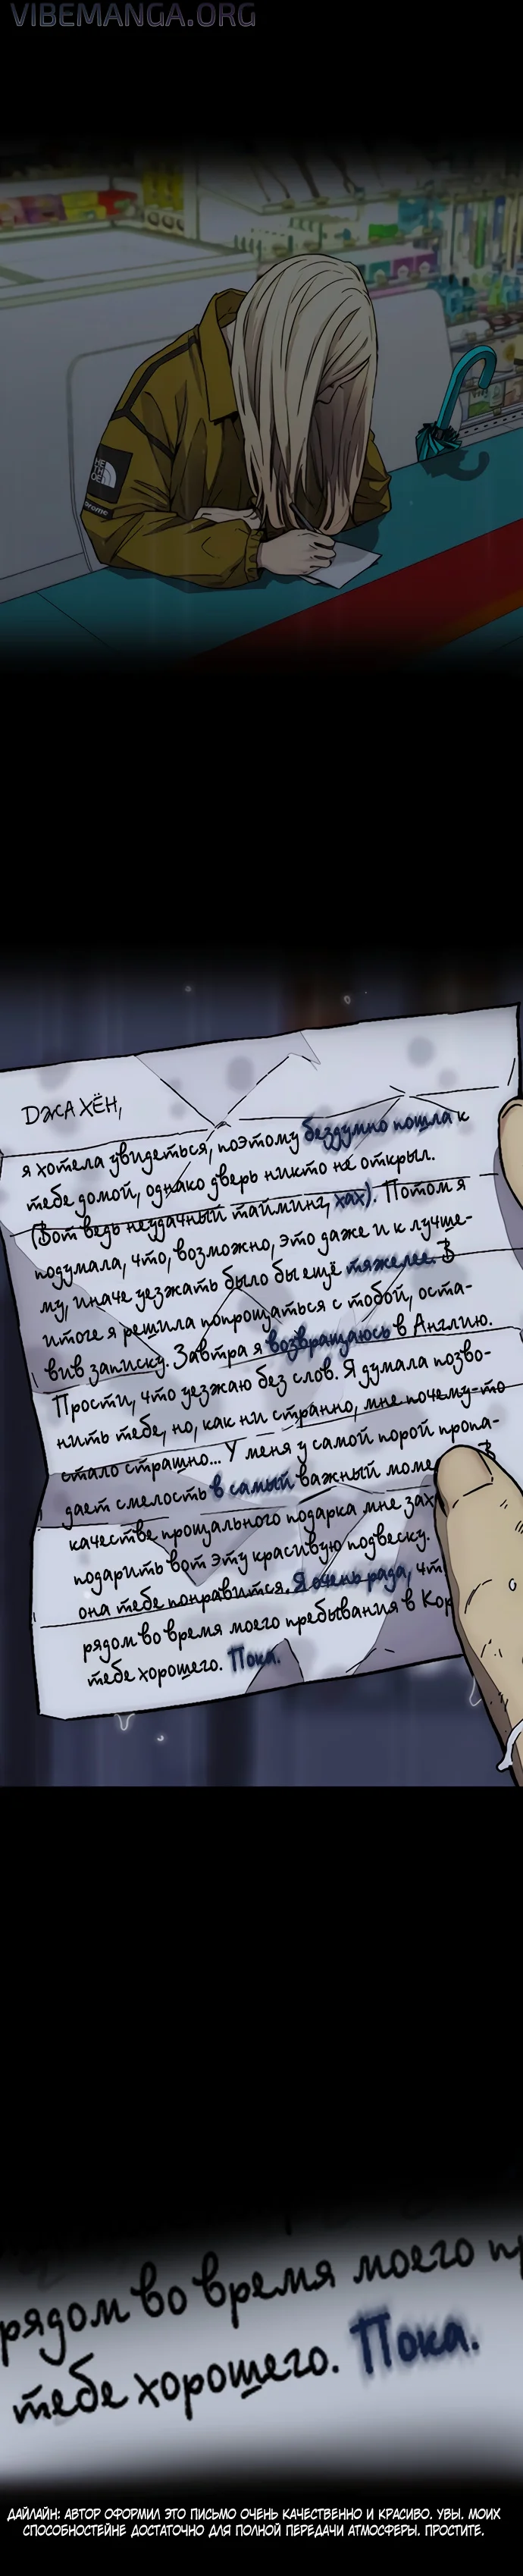 VIBEMANGA.ORG
THE
NORTH
FACE
Supreme
ДЖАХЁН,
я хотела увидеться, поэтому бездумно пошла к
тебе домой, однако дверь никто не открыл.
(Вот ведь неудачный тайминг, хах). Потом я
подумала, что, возможно, это даже и к лучше-
му, иначе уезжать было бы ещё тяжелее. В
итоге я решила попрощаться с тобой, оста-
вив записку. Завтра я возвращаюсь в Англию.
Прости, что уезжаю без слов. Я думала позво-
нить тебе, но, как ни странно, мне почему-то
стало страшно... У меня у самой порой пропа-
дает смелость в самый важный моме
качестве прощального подарка мне зах
подарить вот эту красивую подвеску.
она тебе понравится. Я очень рада, чт
рядом во время моего пребывания в Кор
тебе хорошего. Пока.
рядом во время моего п
тебе хорошего. Пока.
ДАЙЛАЙН: АВТОР ОФОРМИЛ ЭТО ПИСЬМО ОЧЕНЬ КАЧЕСТВЕННО И КРАСИВО. УВЫ. МОИХ
СПОСОБНОСТЕЙНЕ ДОСТАТОЧНО ДЛЯ ПОЛНОЙ ПЕРЕДАЧИ АТМОСФЕРЫ. ПРОСТИТЕ.